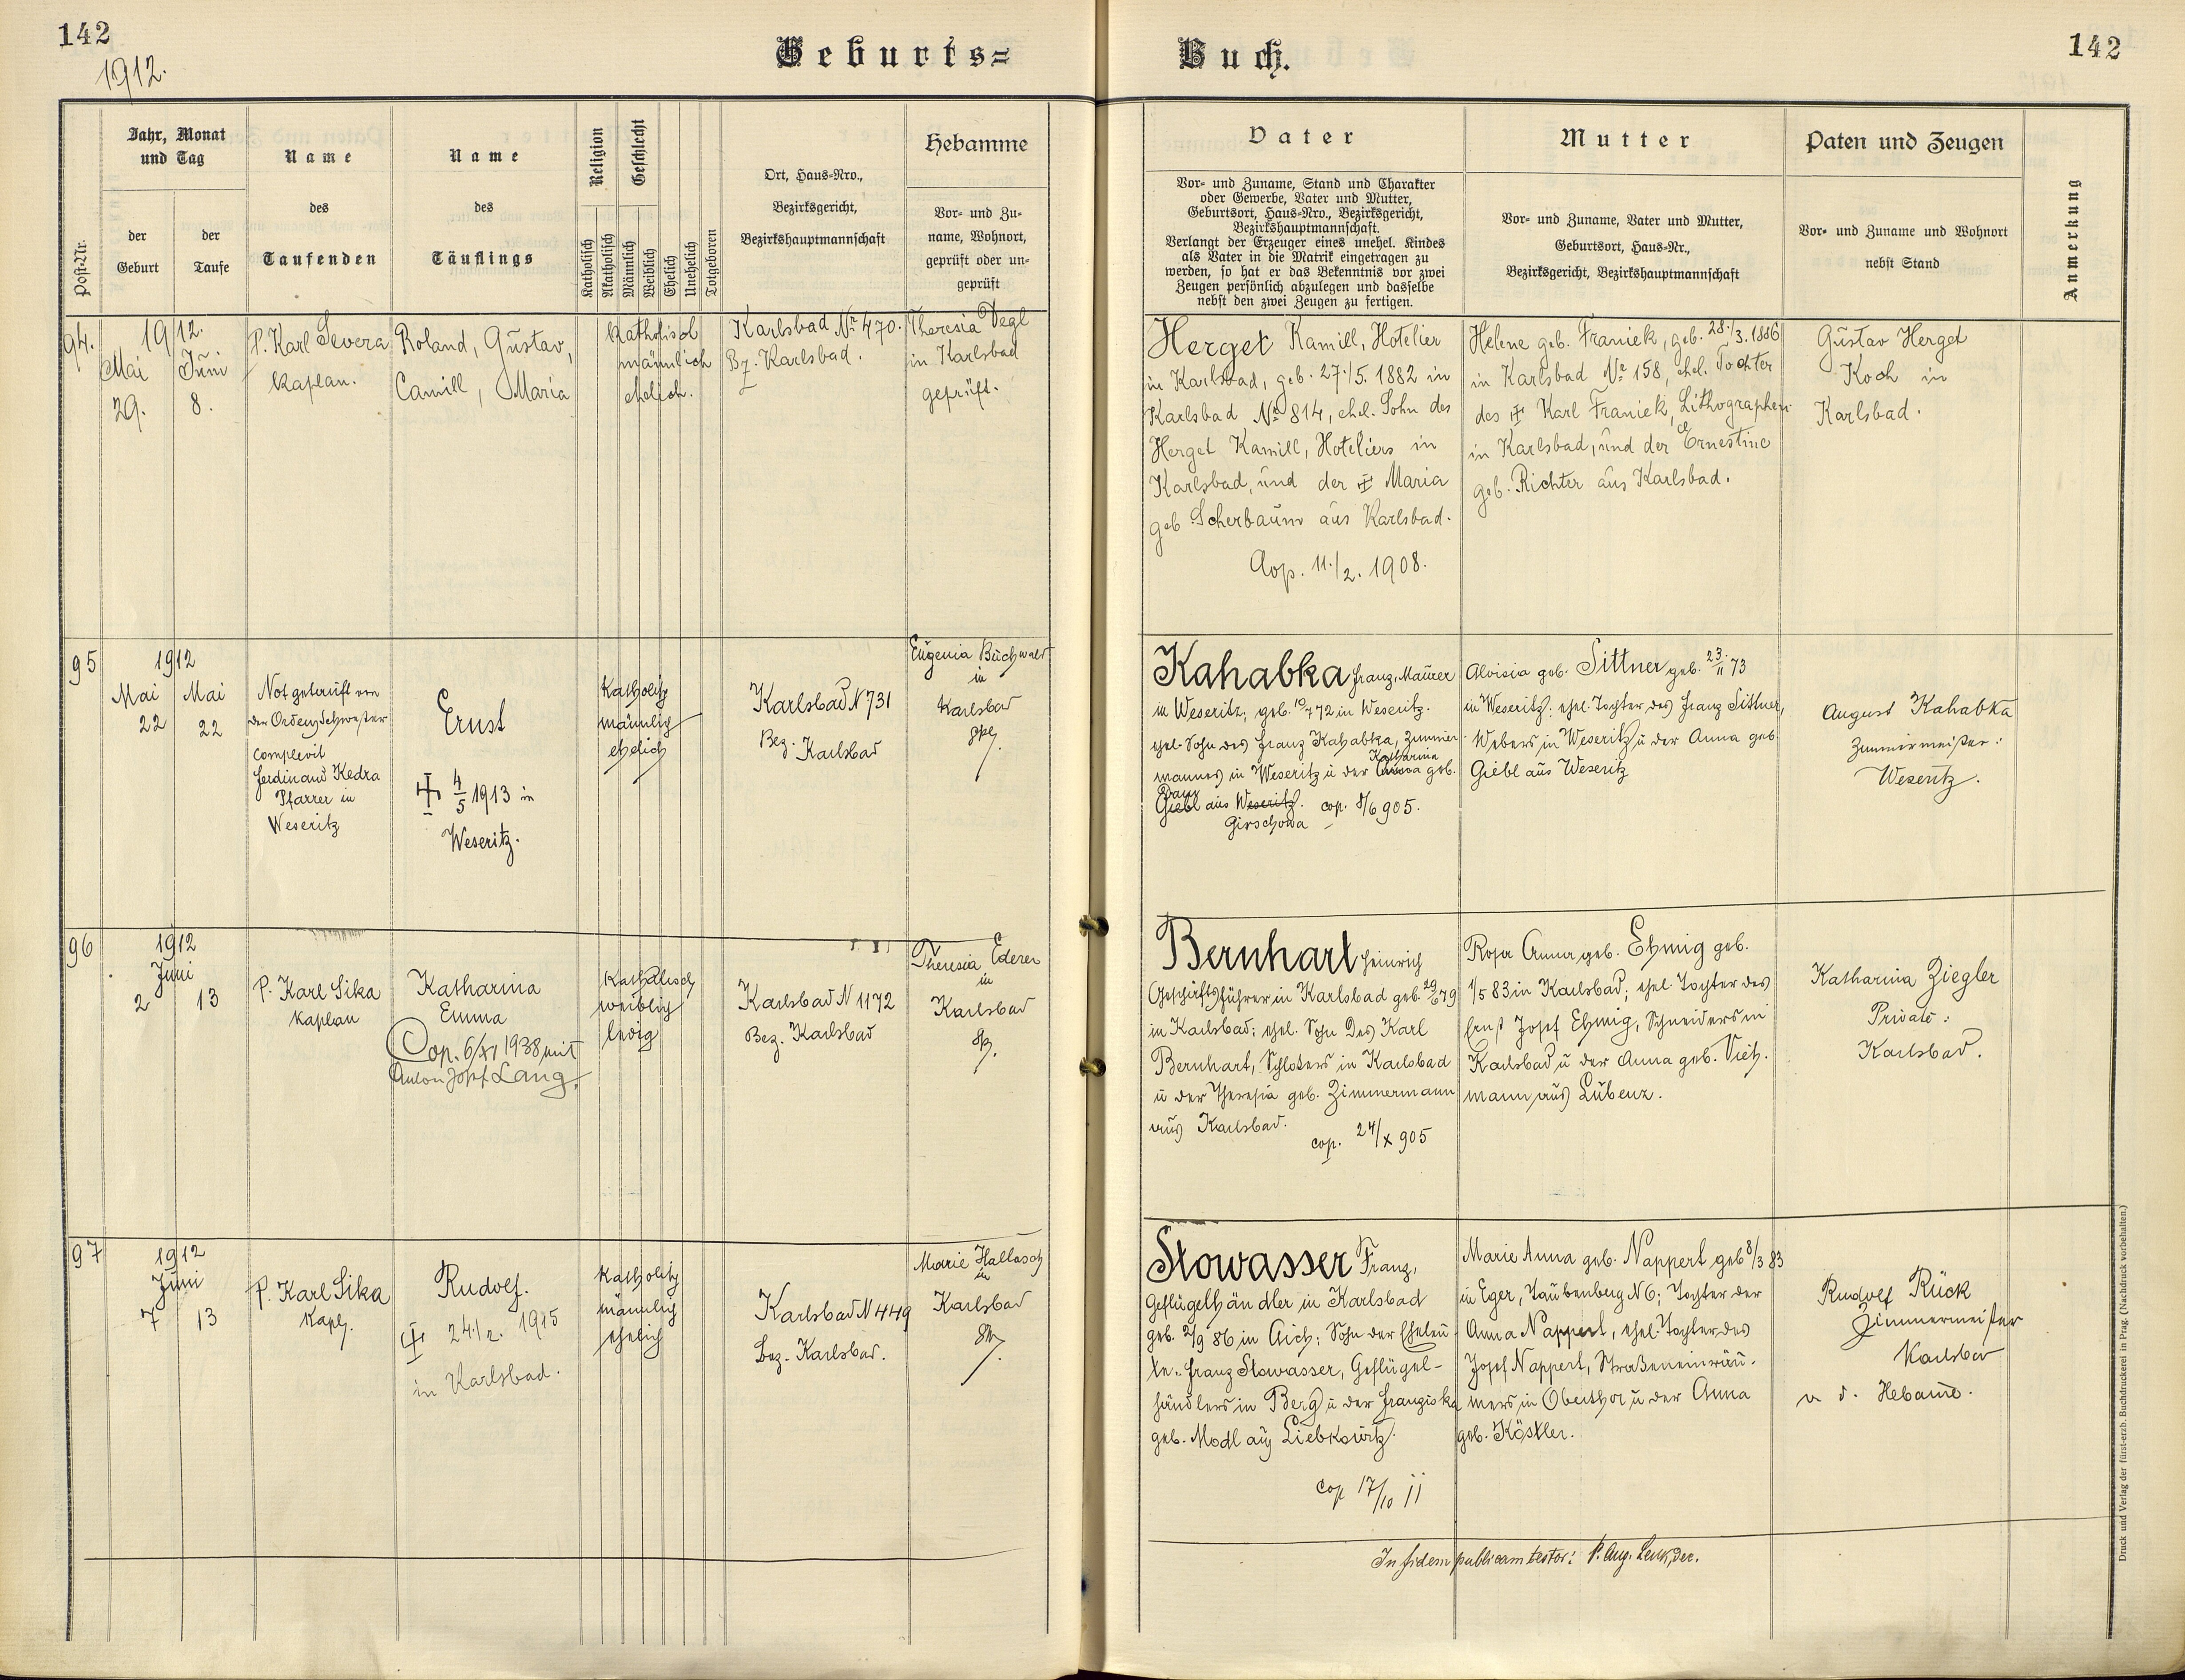 142
1912.
Geburts=
Buch.
142
Post-Nr.
Jahr, Monat
und Tag
der
Geburt
der
Taufe
Name
des
Taufenden
Name
des
Täuflings
Religion
Katholisch
Akatholisch
Geschlecht
Männlich
Weiblich
Ehelich
Unehelich
Totgeboren
Ort, Haus-Nro.,
Bezirksgericht,
Bezirkshauptmannschaft
Hebamme
Vor- und Zu-
name, Wohnort,
geprüft oder un-
geprüft
Vater
Vor- und Zuname, Stand und Charakter
oder Gewerbe, Vater und Mutter,
Geburtsort, Haus-Nro., Bezirksgericht,
Bezirkshauptmannschaft.
Verlangt der Erzeuger eines unehel. Kindes
als Vater in die Matrik eingetragen zu
werden, so hat er das Bekenntnis vor zwei
Zeugen persönlich abzulegen und dasselbe
nebst den zwei Zeugen zu fertigen.
Mutter
Vor- und Zuname, Vater und Mutter,
Geburtsort, Haus-Nr.,
Bezirksgericht, Bezirkshauptmannschaft
Paten und Zeugen
Vor- und Zuname und Wohnort
nebst Stand
Anmerkung
94.
1912.
Mai Juni
29. 8.
P. Karl Severa
Kaplan.
Roland, Gustav,
Camill, Maria
katholisch
männlich
ehelich.
Karlsbad Nr. 470.
Bz. Karlsbad.
Theresia Degl
in Karlsbad
geprüft.
Herget Kamill, Hotelier
in Karlsbad, geb. 27./5. 1882 in
Karlsbad Nr 814, ehel. Sohn des
Herget Kamill, Hoteliers in
Karlsbad, und der ☩ Maria
geb Scherbaum aus Karlsbad.
Cop. 11./2. 1908.
Helene geb. Franiek, geb. 28./3. 1886
in Karlsbad Nr 158, ehel. Tochter
des ☩ Karl Franiek, Lithographen
in Karlsbad, und der Ernestine
geb. Richter aus Karlsbad.
Gustav Herget
Koch in
Karlsbad.
95
1912
Mai Mai
22 22
Notgetauft von
der Ordensschwester
Complevit
Ferdinand Kedra
Pfarrer in
Weseritz
Ernst
☩ 4/5 1913 in
Weseritz.
Katholisch
männlich
ehelich
Karlsbad N 731
Bez. Karlsbad
Eugenia Buchwald
in
Karlsbad
Kahabka Franz, Maurer
in Weseritz, geb. 10/4 72 in Weseritz.
ehel. Sohn des Franz Kahabka, Zimmer-
mannes in Weseritz u der Anna geb.
Katharina
Giebl aus Weseritz. cop. 8/6 905.
Girschowa
Aloisia geb. Sittner geb. 23./11 73
in Weseritz: ehel. Tochter des Franz Sittner,
Webers in Weseritz u der Anna geb
Giebl aus Weseritz
August Kahabka
Zimmermeister:
Weseritz.
96
1912
Juni
2 13
P. Karl Sika
Kaplan
Katharina
Emma
Cop. 6/XI 1938 mit
Anton Josef Lang.
Katholisch
weiblich
ledig
Karlsbad N 1172
Bez. Karlsbad
Theresia Ederer
in
Karlsbad
Bernhart Heinrich
Geschäftsführer in Karlsbad geb. 29/6 79
in Karlsbad; ehel. Sohn des Karl
Bernhart, Schlossers in Karlsbad
u der Theresia geb. Zimmermann
aus Karlsbad.
cop. 24/X 905
Rosa Anna geb. Ehmig geb.
1/5 83 in Karlsbad; ehel Tochter des
Ernst Josef Ehmig, Schneiders in
Karlsbad u der Anna geb. Vietz-
mann aus Lubenz.
Katharina Ziegler
Private:
Karlsbad.
97
1912
Juni
7 13
P. Karl Sika
Kapl.
Rudolf.
☩ 24./2. 1915
in Karlsbad.
Katholisch
männlich
ehelich
Karlsbad N 449
Bez. Karlsbad.
Marie Hallasch
in
Karlsbad
Stowasser Franz,
Geflügelhändler in Karlsbad
geb. 2/9 86 in Aich; Sohn der Eheleu-
te: Franz Stowasser, Geflügel-
händlers in Berg u der Franziska
geb. Modl aus Liebkowitz.
cop 17/10 11
Marie Anna geb. Nappert geb 8/3 83
in Eger, Taubenberg N 6; Tochter der
Anna Nappert, ehel. Tochter des
Josef Nappert, Straßeneinräu-
mers in Oberthor u der Anna
geb. Köstler.
Rudolf Rück
Zimmermeister
Karlsbad
u d. Hebamme.
In fidem publicam testor: P. Aug. Lenk, Dec.
Druck und Verlag der fürst-erzb. Buchdruckerei in Prag. (Nachdruck vorbehalten.)